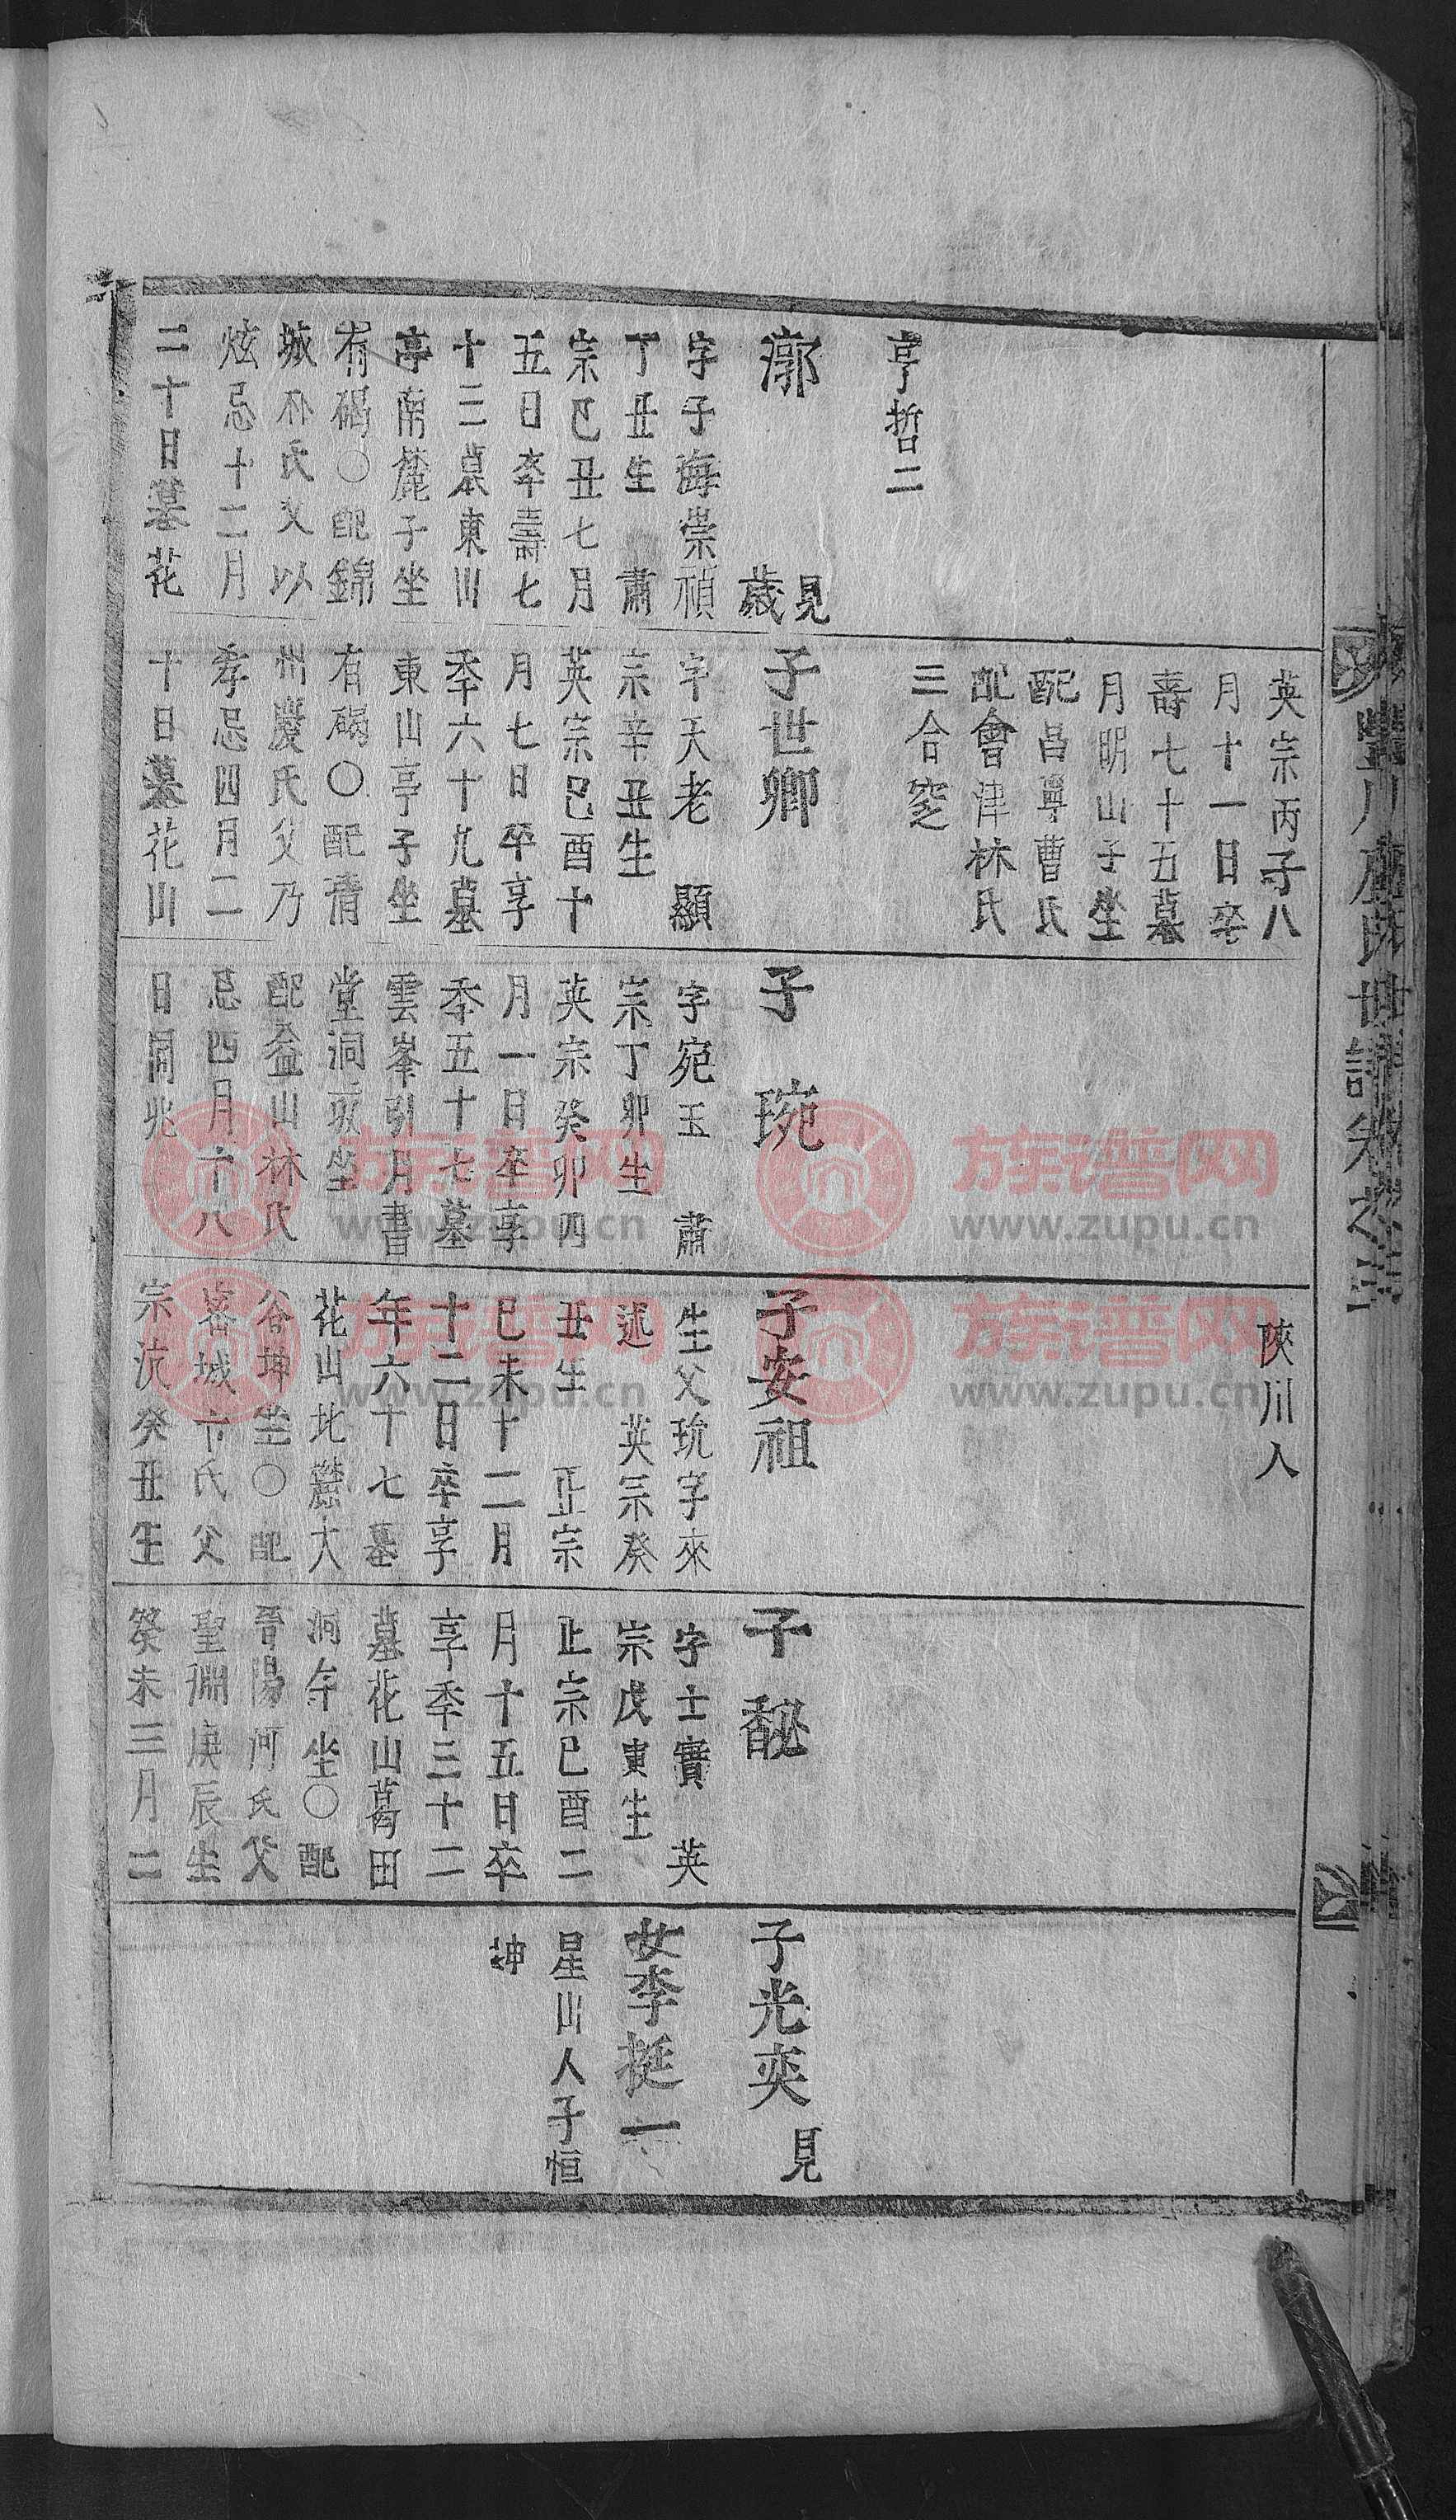 亨哲二
廓
見
歲
字子海崇禎
丁丑生 肅
宗己丑七月
五日卒壽七
十三墓東川
亭南麓子坐
有碣○配錦
城朴氏父以
炫忌十二月
二十日墓花
英宗丙子八
月十一日卒
壽七十五墓
月明山子坐
配昌寧曹氏
配會津林氏
三合窆
子世卿
字天老 顯
宗辛丑生
英宗己酉十
月七日卒享
季六十九墓
東山亭子坐
有碣○配清
州慶氏父乃
孝忌四月二
十日墓花山
子琬
字宛玉 肅
宗丁卯生
英宗癸卯四
月一日卒享
季五十七墓
雲峯引月書
堂洞亥坐
配益山林氏
忌四月十八
日同兆
陜川人
子安祖
生父玧字來
述 英宗癸
丑生 正宗
己未十二月
十二日卒享
年六十七墓
花山北麓大
谷坤坐○配
宗沆癸丑生
子馝
字士實 英
宗戊寅生
正宗己酉二
月十五日卒
享季三十二
墓花山葛田
洞午坐○配
晉陽河氏父
聖淵庚辰生
癸未三月二
子光奕
見
女李挺一
星山人子恒
坤
族谱网
www.zupu.cn
族谱网
www.zupu.cn
族谱网
www.zupu.cn
族谱网
www.zupu.cn